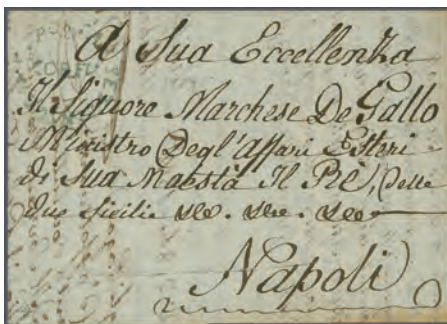 CORFU
A Sua Eccellenza
Il Signore Marchese De Gallo
Ministro Degl'affari Esteri
di Sua Maestà Il Rè, delle
due Sicilie &c. &c. &c.
Napoli